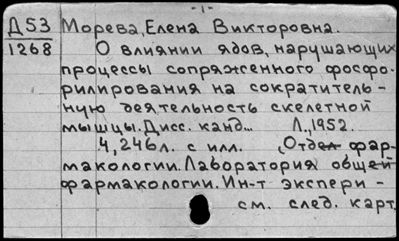 - 1 -
Д53 Морева, Елена Викторовна.
1268 О влиянии ядов, нарушающих
процессы сопряженного фосфо-
рилирования на сократитель-
ную деятельность скелетной
мышцы. Дисс. канд... Л., 1952.
4, 246л. с илл. Отдел фар-
макологии. Лаборатория общей
фармакологии. Ин-т экспери-
см. след. карт.